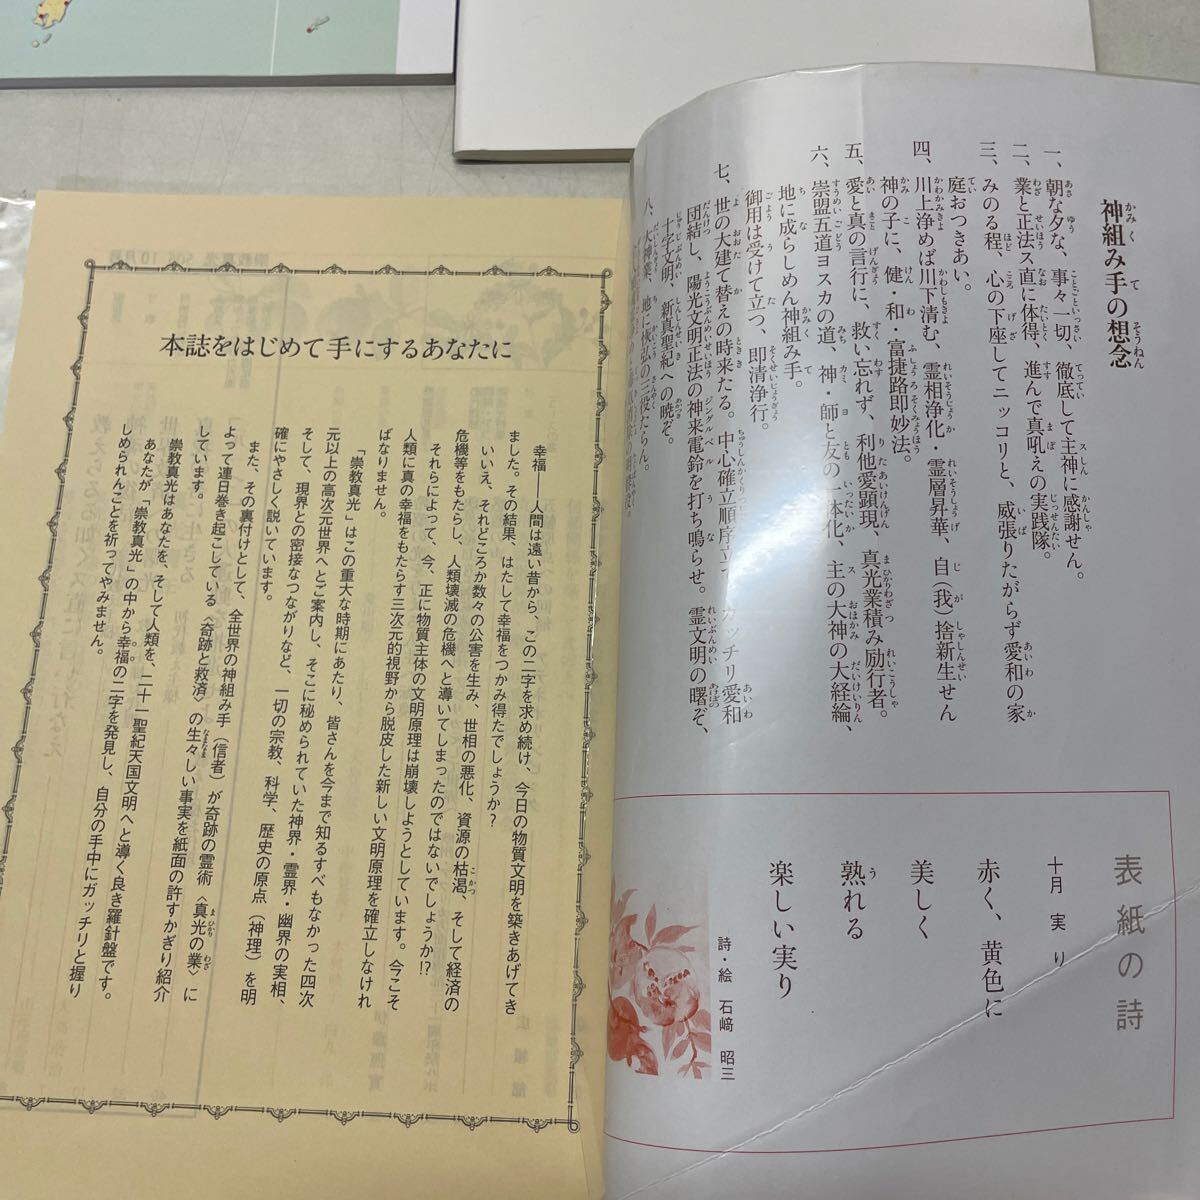 神組み手の想念
一、朝な夕な、事々一切、徹底して主神に感謝せん。
二、業と正法ス直に体得、進んで真吼えの実践隊。
三、みのる程、心の下座してニッコリと、威張りたがらず愛和の家
庭おつきあい。
四、川上浄めば川下清む、霊相浄化・霊層昇華、自(我)捨新生せん
神の子に、健・和・富捷路即妙法。
五、愛と真の言行に、救い忘れず、利他愛顕現、真光業積み励行者。
六、崇盟五道ヨスカの道、神・師と友の一体化、主の大神の大経綸、
地に成らしめん神組み手。
御用は受けて立つ、即清浄行。
七、世の大建て替えの時来たる。中心確立順序立て カッチリ愛和
団結し、陽光文明正法の神来電鈴を打ち鳴らせ。霊文明の曙ぞ、
十字文明、新真聖紀への暁ぞ。
八、大神業、地に恢弘の三役たらん。
表紙の詩
十月 実り
赤く、黄色に
美しく
熟れる
楽しい実り
詩・絵 石﨑 昭三
本誌をはじめて手にするあなたに
幸福――人間は遠い昔から、この二字を求め続け、今日の物質文明を築きあげてき
ました。その結果、はたして幸福をつかみ得たでしょうか?
いいえ、それどころか数々の公害を生み、世相の悪化、資源の枯渇、そして経済の
危機等をもたらし、人類壊滅の危機へと導いてしまったのではないでしょうか!?
それらによって、今、正に物質主体の文明原理は崩壊しようとしています。今こそ
人類に真の幸福をもたらす三次元的視野から脱皮した新しい文明原理を確立しなけれ
ばなりません。
「崇教真光」はこの重大な時期にあたり、皆さんを今まで知るすべもなかった四次
元以上の高次元世界へとご案内し、そこに秘められていた神界・霊界・幽界の実相、
そして、現界との密接なつながりなど、一切の宗教、科学、歴史の原点(神理)を明
確にやさしく説いています。
また、その裏付けとして、全世界の神組み手(信者)が奇跡の霊術〈真光の業〉に
よって連日巻き起こしている〈奇跡と救済〉の生々しい事実を紙面の許すかぎり紹介
しています。
崇教真光はあなたを、そして人類を、二十一聖紀天国文明へと導く良き羅針盤です。
あなたが「崇教真光」の中から幸福の二字を発見し、自分の手中にガッチリと握り
しめられんことを祈ってやみません。